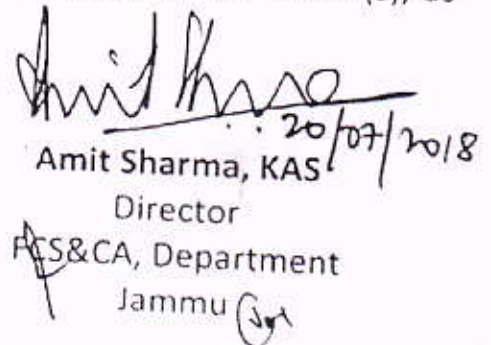 20/07/2018
Amit Sharma, KAS
Director
FCS&CA, Department
Jammu